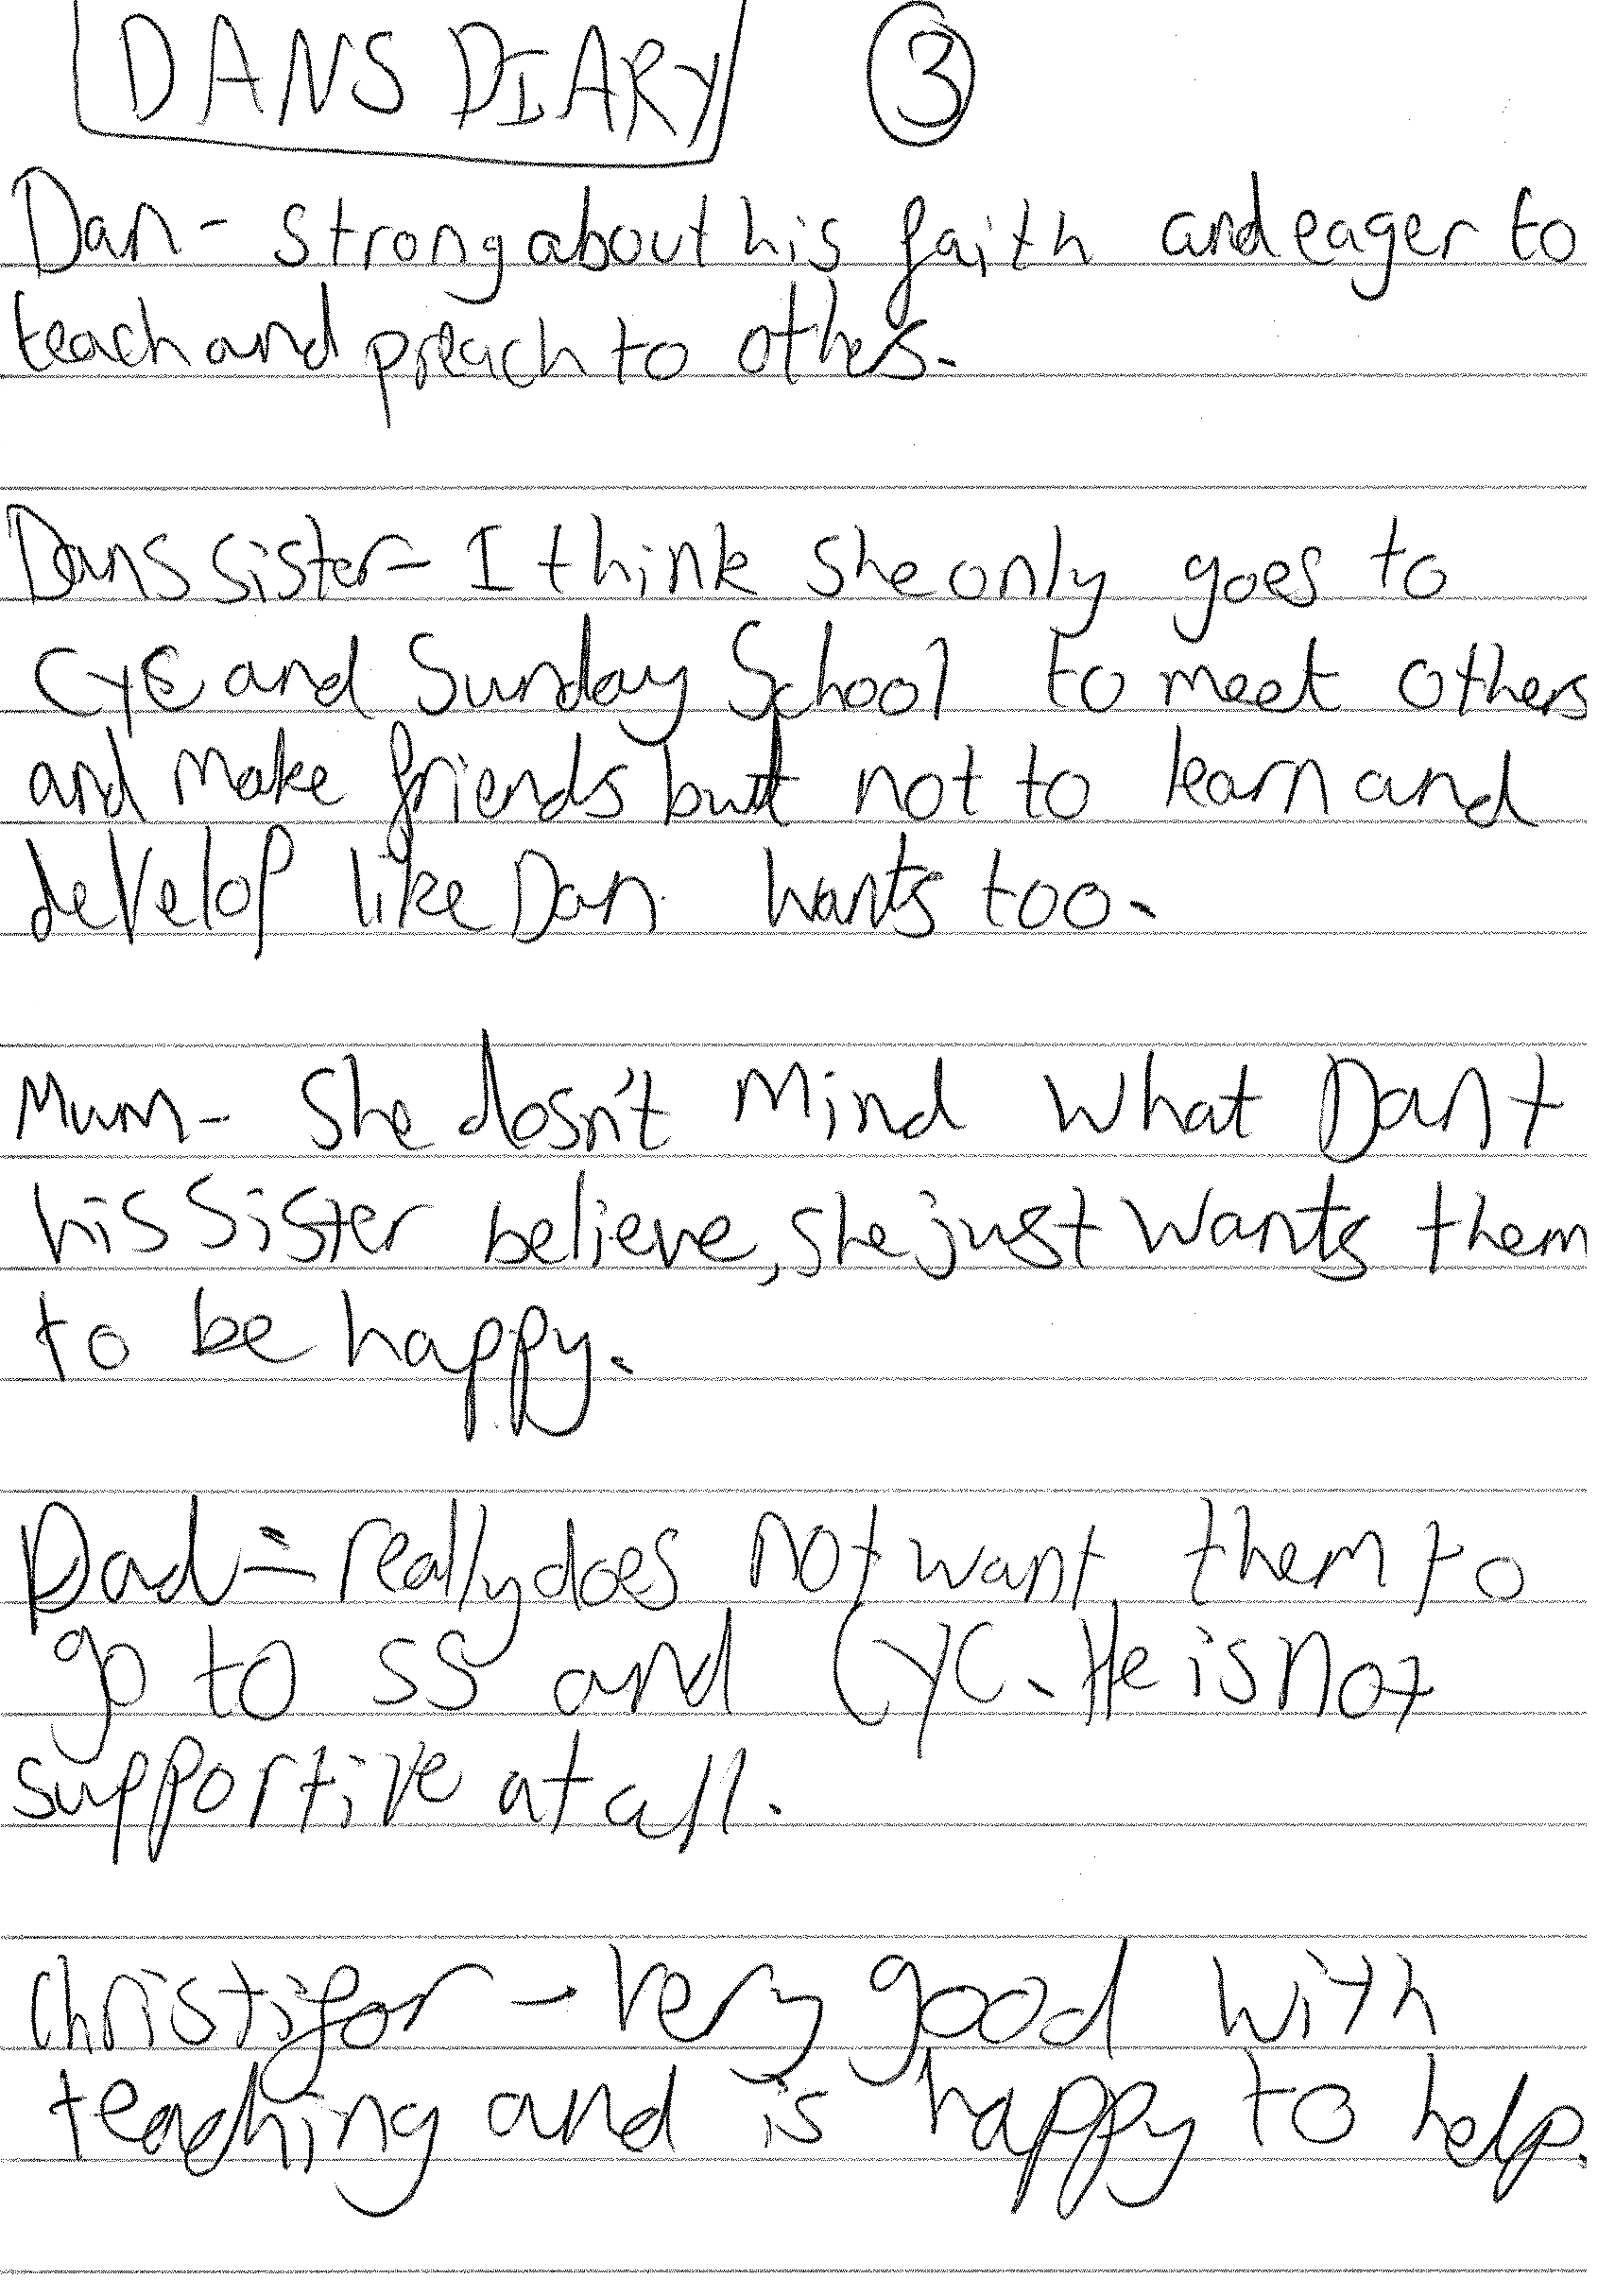 DANS DIARY ③
Dan - strong about his faith and eager to
teach and preach to others.
Dans sister - I think she only goes to
CYC and Sunday School to meet others
and make friends but not to learn and
develop like Dan wants too.
Mum - She dosn't mind what Dan +
his sister believe, she just wants them
to be happy.
Dad - really does not want them to
go to SS and CYC. He is not
supportive at all.
Christifor - very good with
teaching and is happy to help.